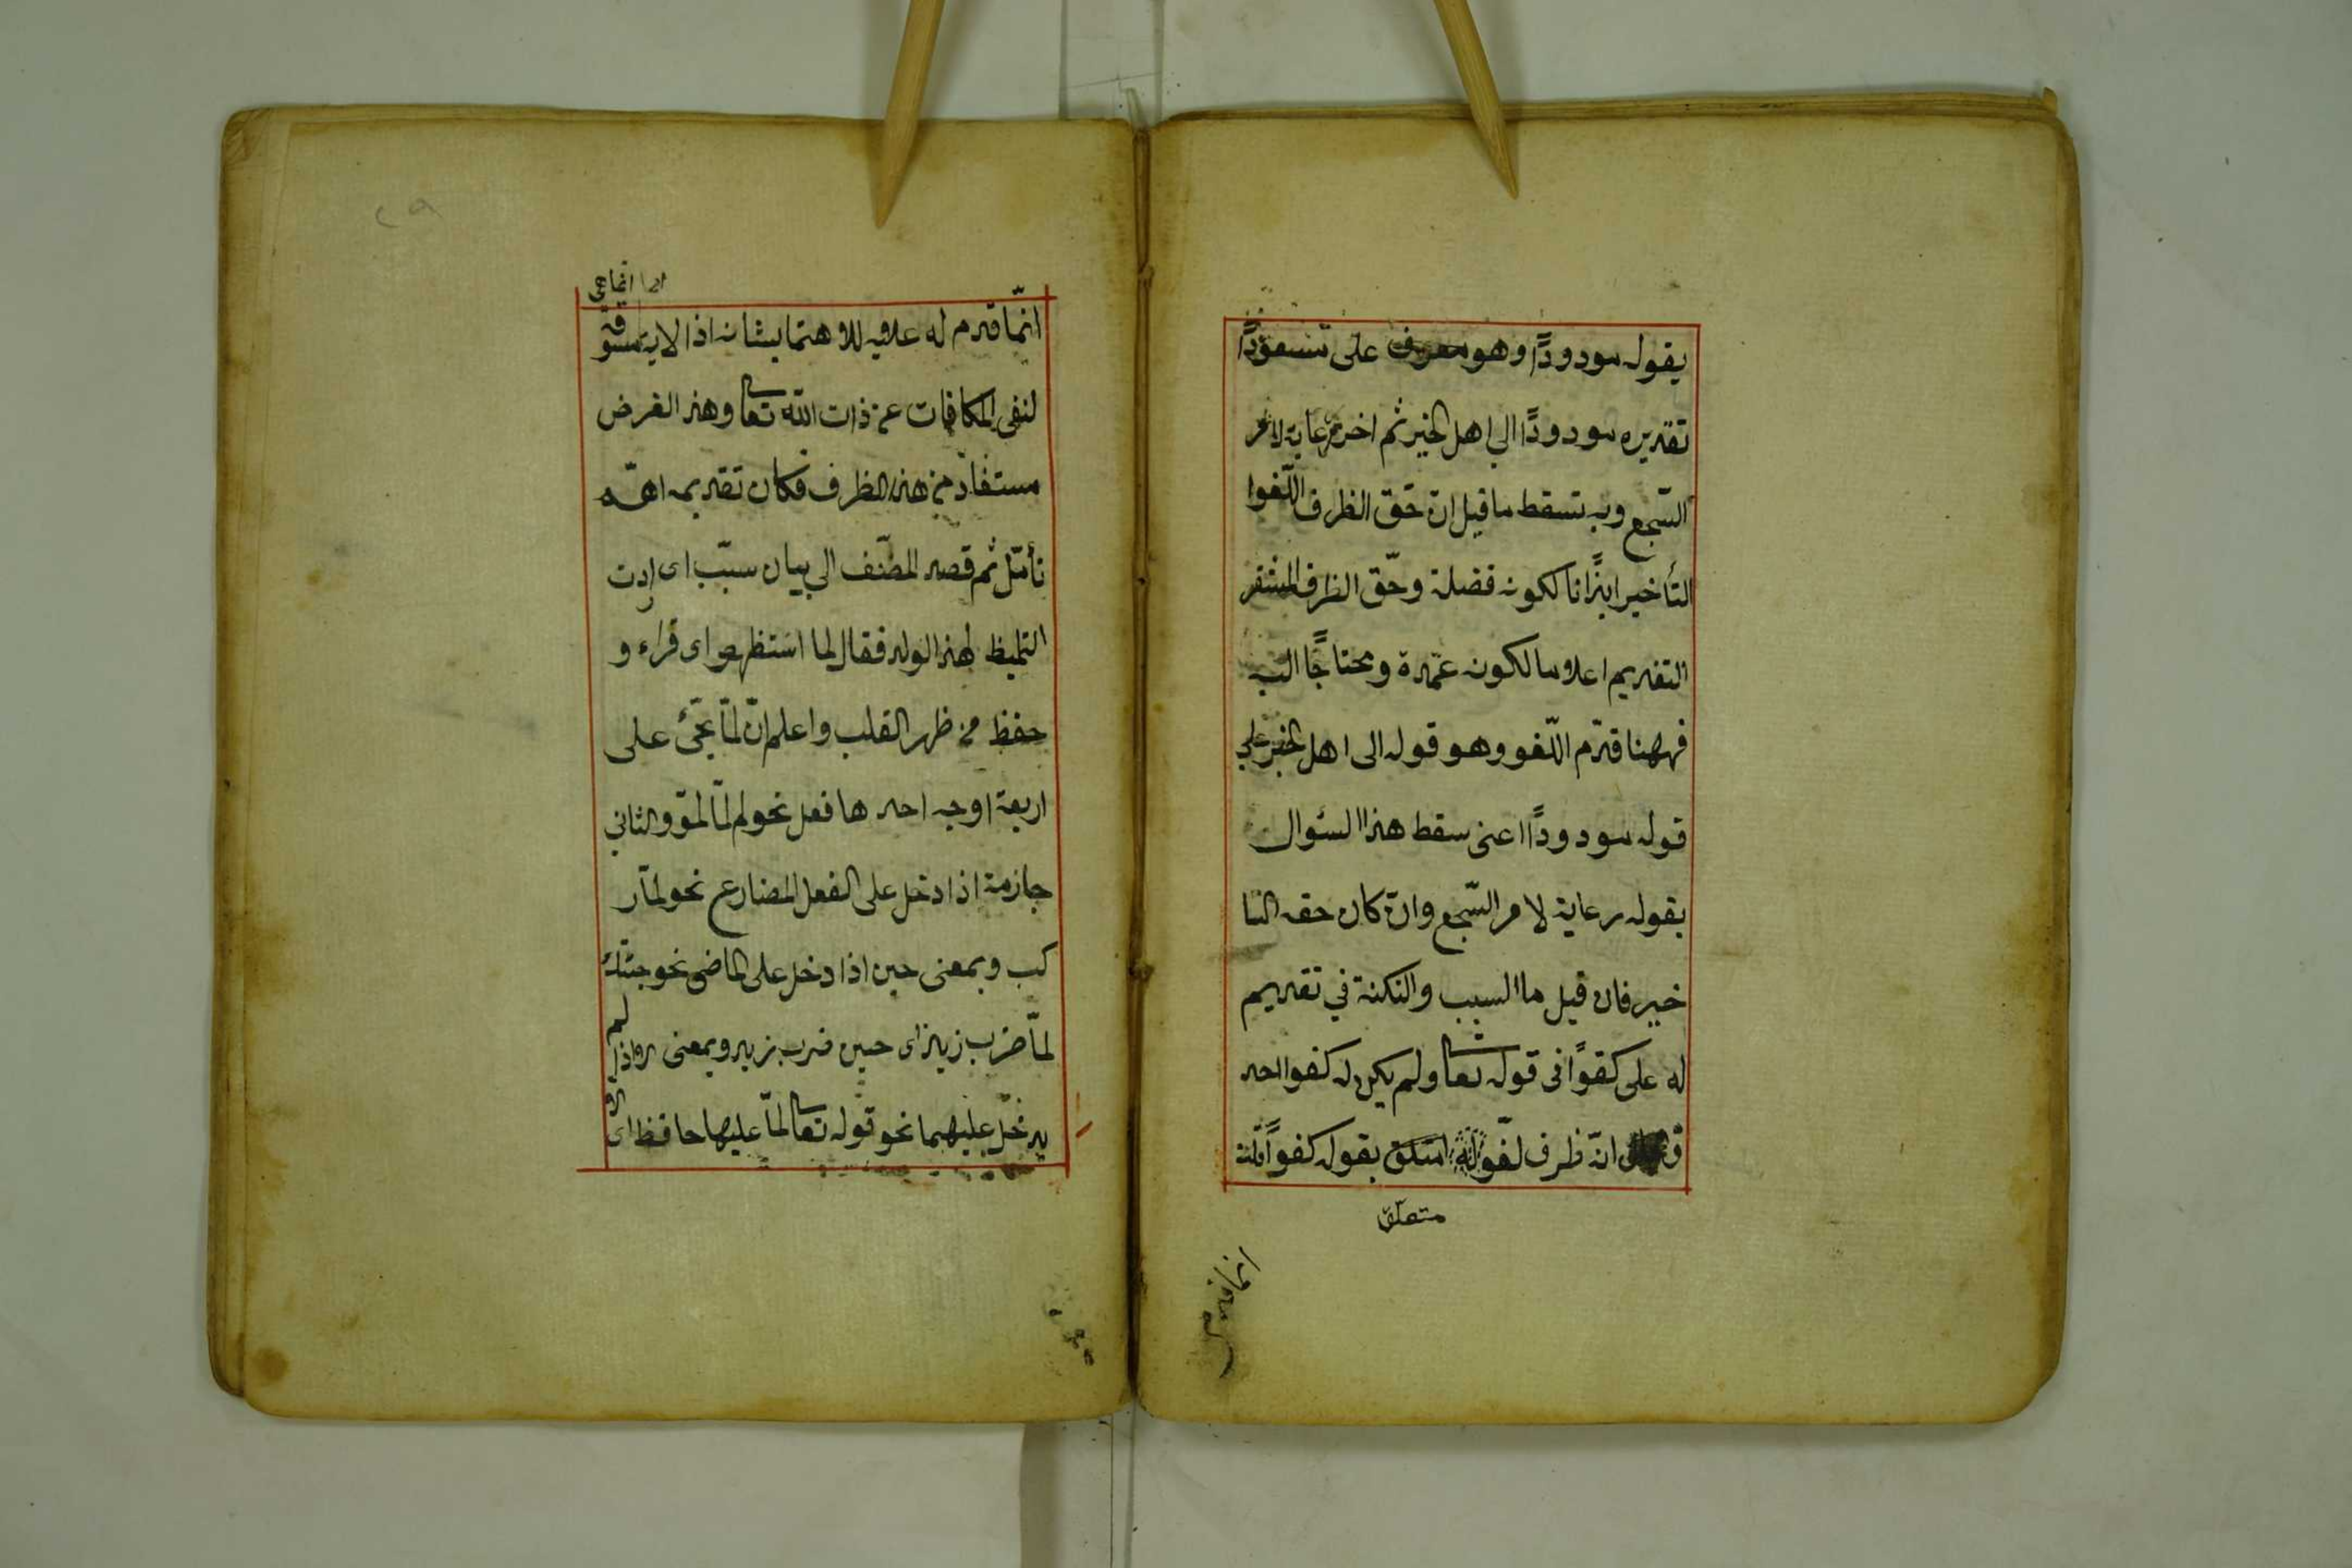 يقوله مودودًا وهو معروف على مسعودًا
تقديره مودودًا الى اهل الخير ثم اخر رعاية لامر
السّجع وبه تسقط ما قيل انّ حقّ الظرف اللّغوا
التأخير ايزانا لكونه فضلة وحقّ الظرف المستقر
التقديم اعلاما لكونه عمدة ومحتاجًا اليه
فههنا قدّم اللّغو وهو قوله الى اهل الخير على
قوله مودودًا اعنى سقط هذا السئوال
بقوله رعاية لامر السّجع وانّ كان حقه التا
خير فان قيل ما السبب والنكتة في تقديم
له على كفوًا فى قوله تعا ولم يكن له كفوا احد
انّه ظرف لغو له متعلق بقوله كفوًا قلت
متعلّق
انّما قدم له عليه للاهتما بشانه اذ الاية مسوقة
لنفى المكافات عن ذات الله تعا وهذ الغرض
مستفاد من هذ الظرف فكان تقديمه اهمّ
تأمّل ثم قصد المصنّف الى بيان سبب اى ادت
التلميظ لهذ الولد فقال لما استظهر اى قراء و
حفظ من ظهر القلب واعلم انّ لمّا تجئ على
اربعة اوجه احد ها فعل نحو لم لمّا لمّو والثانى
جازمة اذا دخل على الفعل المضارع نحو لمّا ير
كب وبمعنى حين اذا دخل على الماضى نحو جئتك
لمّا ضرب زيد اى حين ضرب زيد وبمعنى الا اذا لم
يدخل عليهما نحو قوله تعا لمّا عليها حافظ اى الا